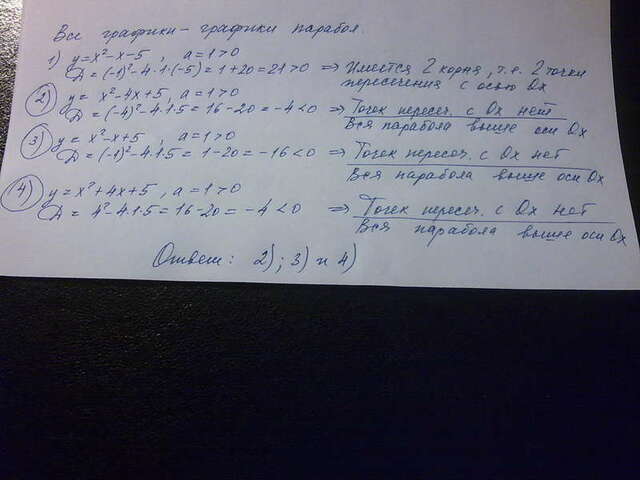 Все графики - графики парабол.
1) y = x² - x - 5, a = 1 > 0
D = (-1)² - 4·1·(-5) = 1 + 20 = 21 > 0 ⇒ Имеется 2 корня, т.е. 2 точки
пересечения с осью Ox
2) y = x² - 4x + 5, a = 1 > 0
D = (-4)² - 4·1·5 = 16 - 20 = -4 < 0 ⇒ Точек пересеч. с Ox нет
Вся парабола выше оси Ox
3) y = x² - x + 5, a = 1 > 0
D = (-1)² - 4·1·5 = 1 - 20 = -16 < 0 ⇒ Точек пересеч. с Ox нет
Вся парабола выше оси Ox
4) y = x² + 4x + 5, a = 1 > 0
D = 4² - 4·1·5 = 16 - 20 = -4 < 0 ⇒ Точек пересеч. с Ox нет
Вся парабола выше оси Ox
Ответ: 2); 3) и 4)